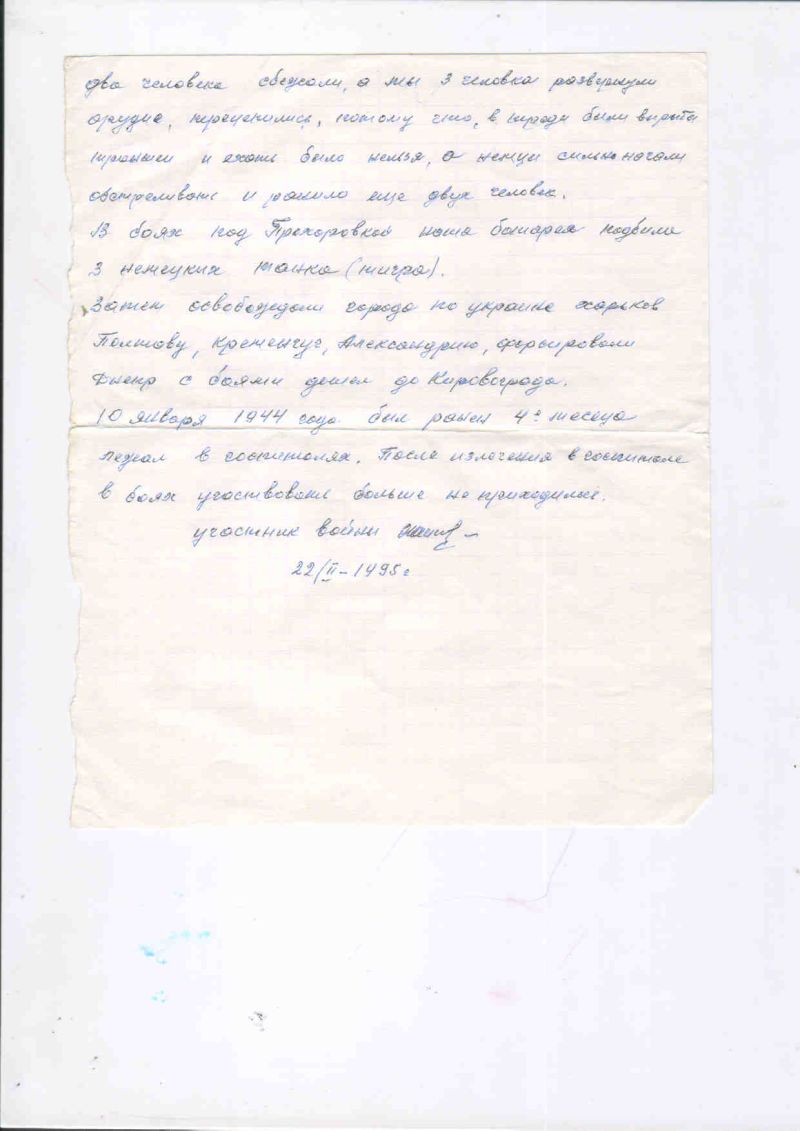 два человека сбежали, а мы 3 человека развернули
орудие, прицепились, потому что, в переди были вырыты
траншеи и ехать было нельзя, а немцы сильно начали
обстреливать и ранило еще двух человек.
В боях под Прохоровкой наша батарея подбила
3 немецких танка (тигра).
Затем освобождали города по украине харьков
Полтаву, Кременчуг, Александрию, форсировали
Днепр с боями дошли до Кировограда.
10 января 1944 года был ранен 4 месяца
лежал в госпиталях. После излечения в госпитале
в боях участвовать больше не приходилось.
участник войны
22/II-1995г